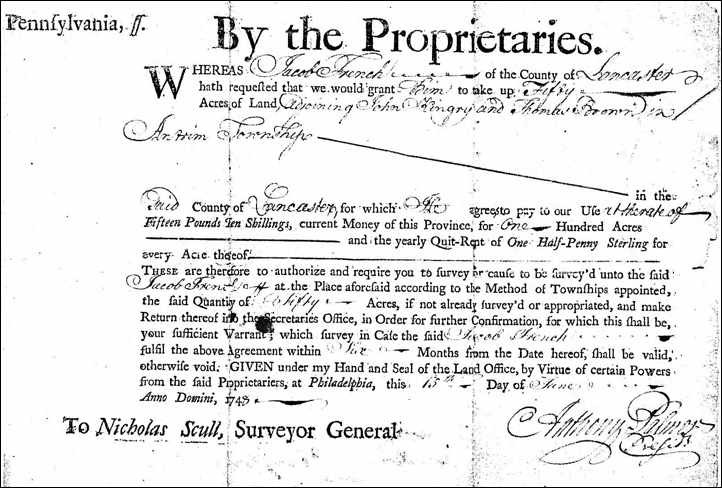 Pennſylvania, ſſ.
By the Proprietaries.
WHEREAS Jacob French of the County of Lancaster
hath requeſted that we would grant Him to take up Fifty
Acres of Land adjoining John and Thomas Brown in
Antrim Township
in the
ſaid County of Lancaster, for which He agrees to pay to our Uſe at the rate of
Fifteen Pounds Ten Shillings, current Money of this Province, for One Hundred Acres
and the yearly Quit-Rent of One Half-Penny Sterling for
every Acre thereof.
THESE are therefore to authorize and require you to ſurvey or cauſe to be ſurvey'd unto the ſaid
Jacob French at the Place aforeſaid according to the Method of Townſhips appointed,
the ſaid Quantity of Fifty Acres, if not already ſurvey'd or appropriated, and make
Return thereof into the Secretaries Office, in Order for further Confirmation, for which this ſhall be,
your ſufficient Warrant; which ſurvey in Caſe the ſaid Jacob French
fulfil the above Agreement within Six Months from the Date hereof, ſhall be valid,
otherwiſe void. GIVEN under my Hand and Seal of the Land Office, by Virtue of certain Powers
from the ſaid Proprietaries, at Philadelphia, this 15th Day of June
Anno Domini, 1748
To Nicholas Scull, Surveyor General
Anthony Palmer
Presidt